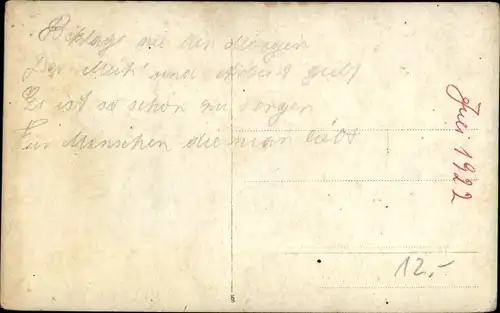 Beklage nie den Morgen
Der Müh' und Arbeit giebt
Es ist so schön zu sorgen
Für Menschen die man liebt
Juli 1922
12.-